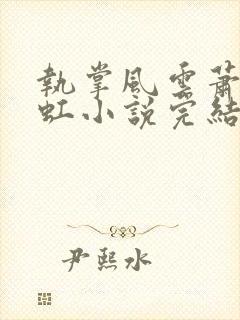 執掌風雲蕭
虹小說完結
尹熙水